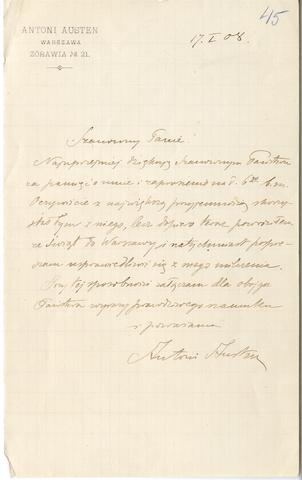 45
ANTONI AUSTEN
WARSZAWA
ŻÓRAWIA № 21.
17.I 08.
Szanowny Panie
Najuprzejmiej dziękuję Szanownym Państwu
za pamięć o mnie i zaproszenie na d. 6go b.m.
Oczywiście z największą przyjemnością skorzy
stałbym z niego, lecz dopiero powróciłem
ze Świąt do Warszawy i natychmiast pospie
szam usprawiedliwić się z mego milczenia.
Przy tej sposobności załączam dla obojga
Państwa wyrazy prawdziwego szacunku
i poważania
Antoni Austen